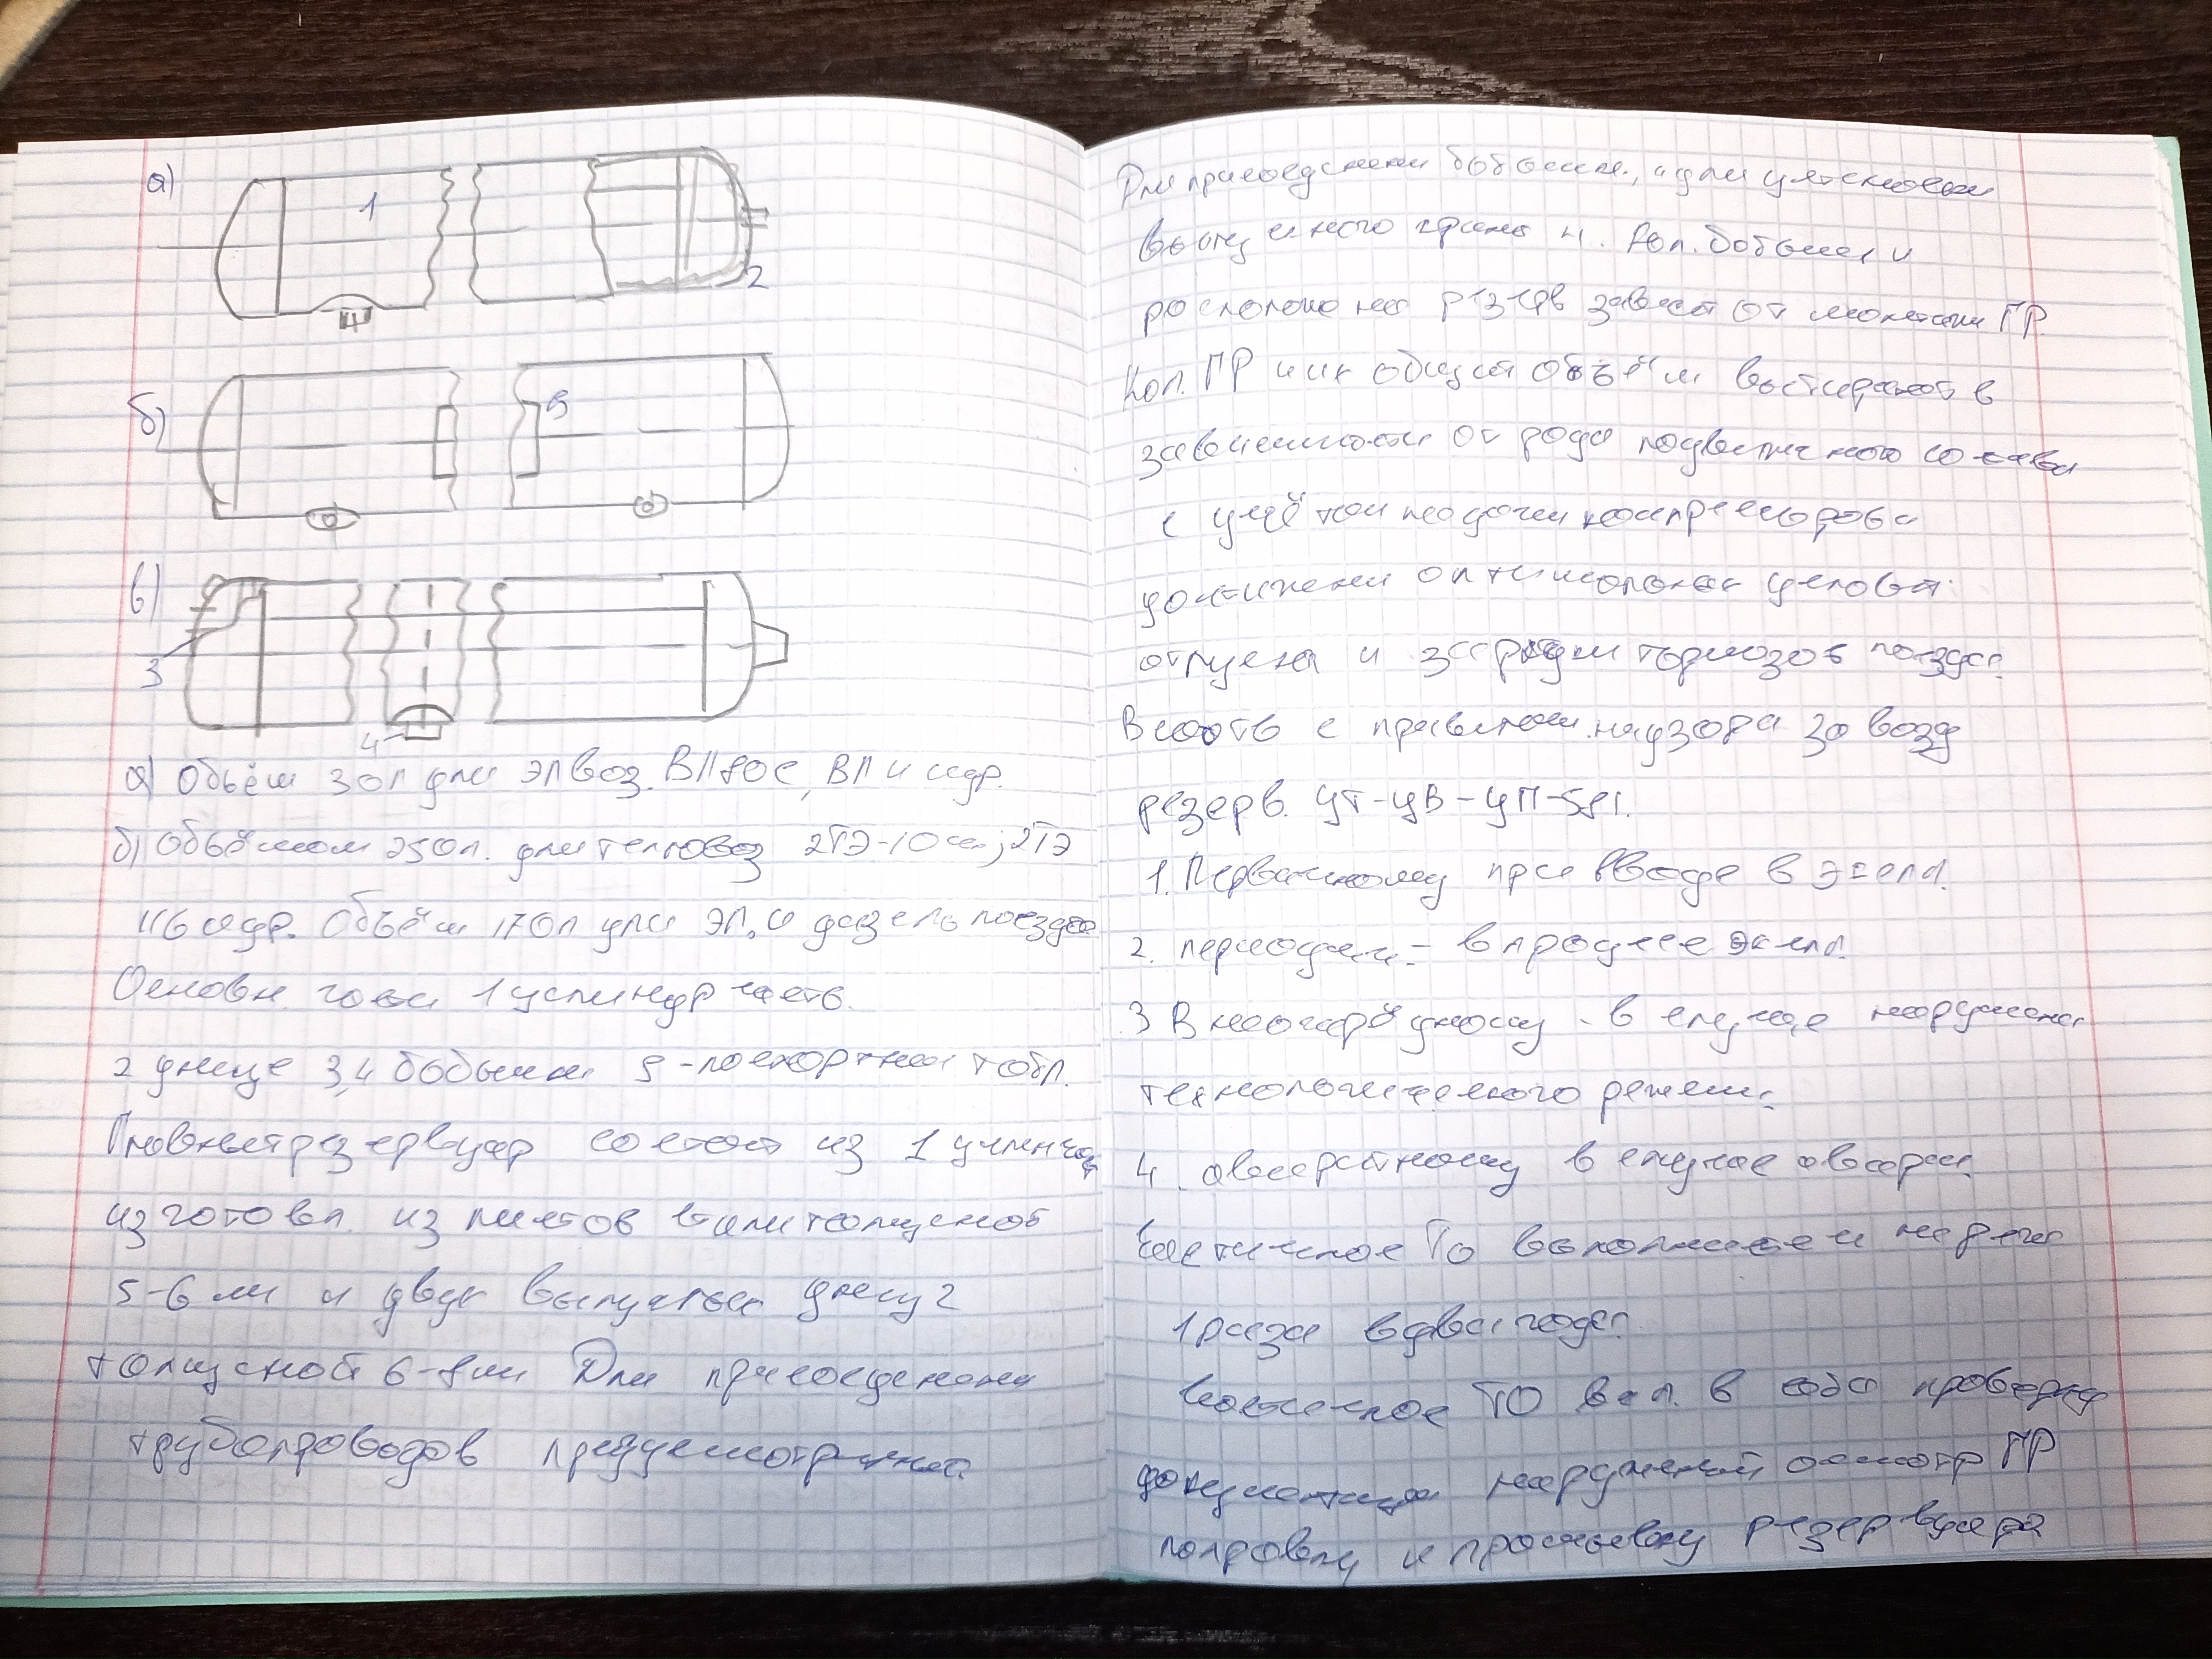 а)
1
2
4
б)
5
в)
3
4
а) Объём 30л для элвоз. ВЛ80с, ВЛ и др.
б) Объёмом 250л. для тепловоз 2ТЭ-10 ; 2ТЭ
116 и др. Объём 170л для Эл. и дизель поездов
Основн. 1 цилиндр часть.
2 днище 3,4 бобышки 5 - паспортная табл.
Главный резервуар состоит из 1 цилиндр
изготовл. из листов стали толщиной
5-6 мм и двух выпуклых днищ 2
толщиной 6-8мм Для присоединени
трубопроводов предусмотрены
Для присоединени бобышки, и для установки
выпускного крана н. Кол. бобышек и
расположение резерв зависит от монтажа ГР
Кол. ГР и их общий объём выбирают в
зависимости от рода подвижного состава
с учётом подачи компрессоров и
достижени оптимальных услови
отпуска и зарядки тормозов поезда.
В соотв с правилам надзора за возд
резерв. ЦТ-ЦВ-ЦП-581.
1. Первичному при вводе в экспл.
2. периодич. - в процессе экспл.
3 Внеочерёдному - в случае нарушени
технологического режима
4. аварийному в случае аварии
Частичное ТО выполняем не реже
1 раза в два года.
ТО вкл. в себя проверку
документации наружный осмотр ГР
и промывку резервуара